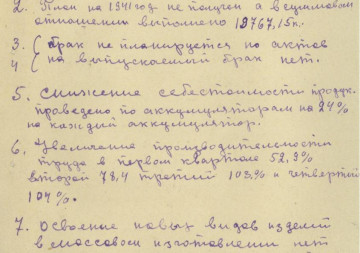 2. План на 1941 год не получен а в суммовом
отношении выполнено 13767,15 к.
3. { брак не планируется но актов
4 { на выпускаемый брак нет.
5. Снижение себестоимости продук.
проведено по аккумуляторам на 24%
на каждый аккумулятор.
6. Увеличение производительности
труда в первом квартале 52,9%
второй 78,4 третий 103% и четвертый
104%.
7. Освоение новых видов изделий
в массовом изготовлении нет